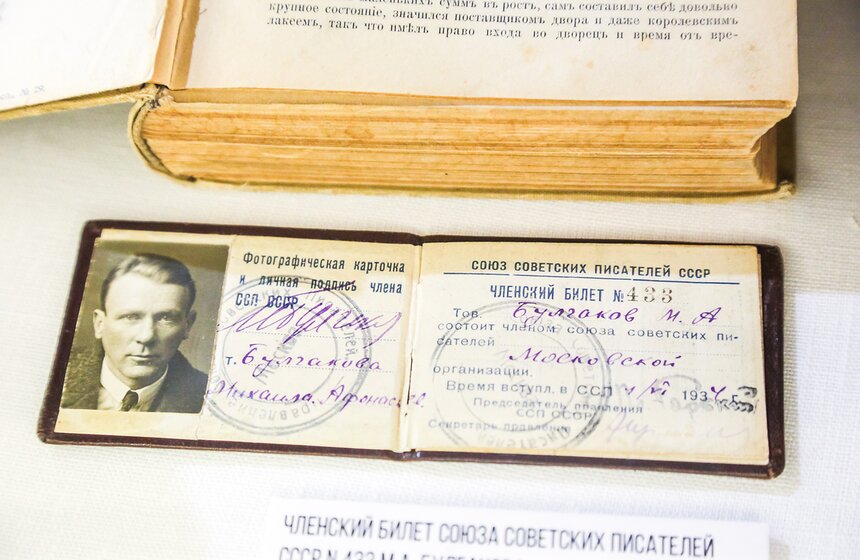 маленькихъ суммъ въ ростъ, самъ составилъ себѣ довольно
крупное состояніе, значился поставщикомъ двора и даже королевскимъ
лакеемъ, такъ что имѣлъ право входа во дворецъ и время отъ вре-
Фотографическая карточка
и личная подпись члена
ССП СССР
т. Булгакова
Михаила Афонасьев.
СОЮЗ СОВЕТСКИХ ПИСАТЕЛЕЙ СССР
ЧЛЕНСКИЙ БИЛЕТ №433
Тов. Булгаков М. А
состоит членом союза советских пи-
сателей Московской
организации.
Время вступл. в ССП 1/VI 1934 г.
Председатель правления
ССП СССР
Секретарь правления
ЧЛЕНСКИЙ БИЛЕТ СОЮЗА СОВЕТСКИХ ПИСАТЕЛЕЙ
СССР N 433 М.А. БУЛГАКОВ